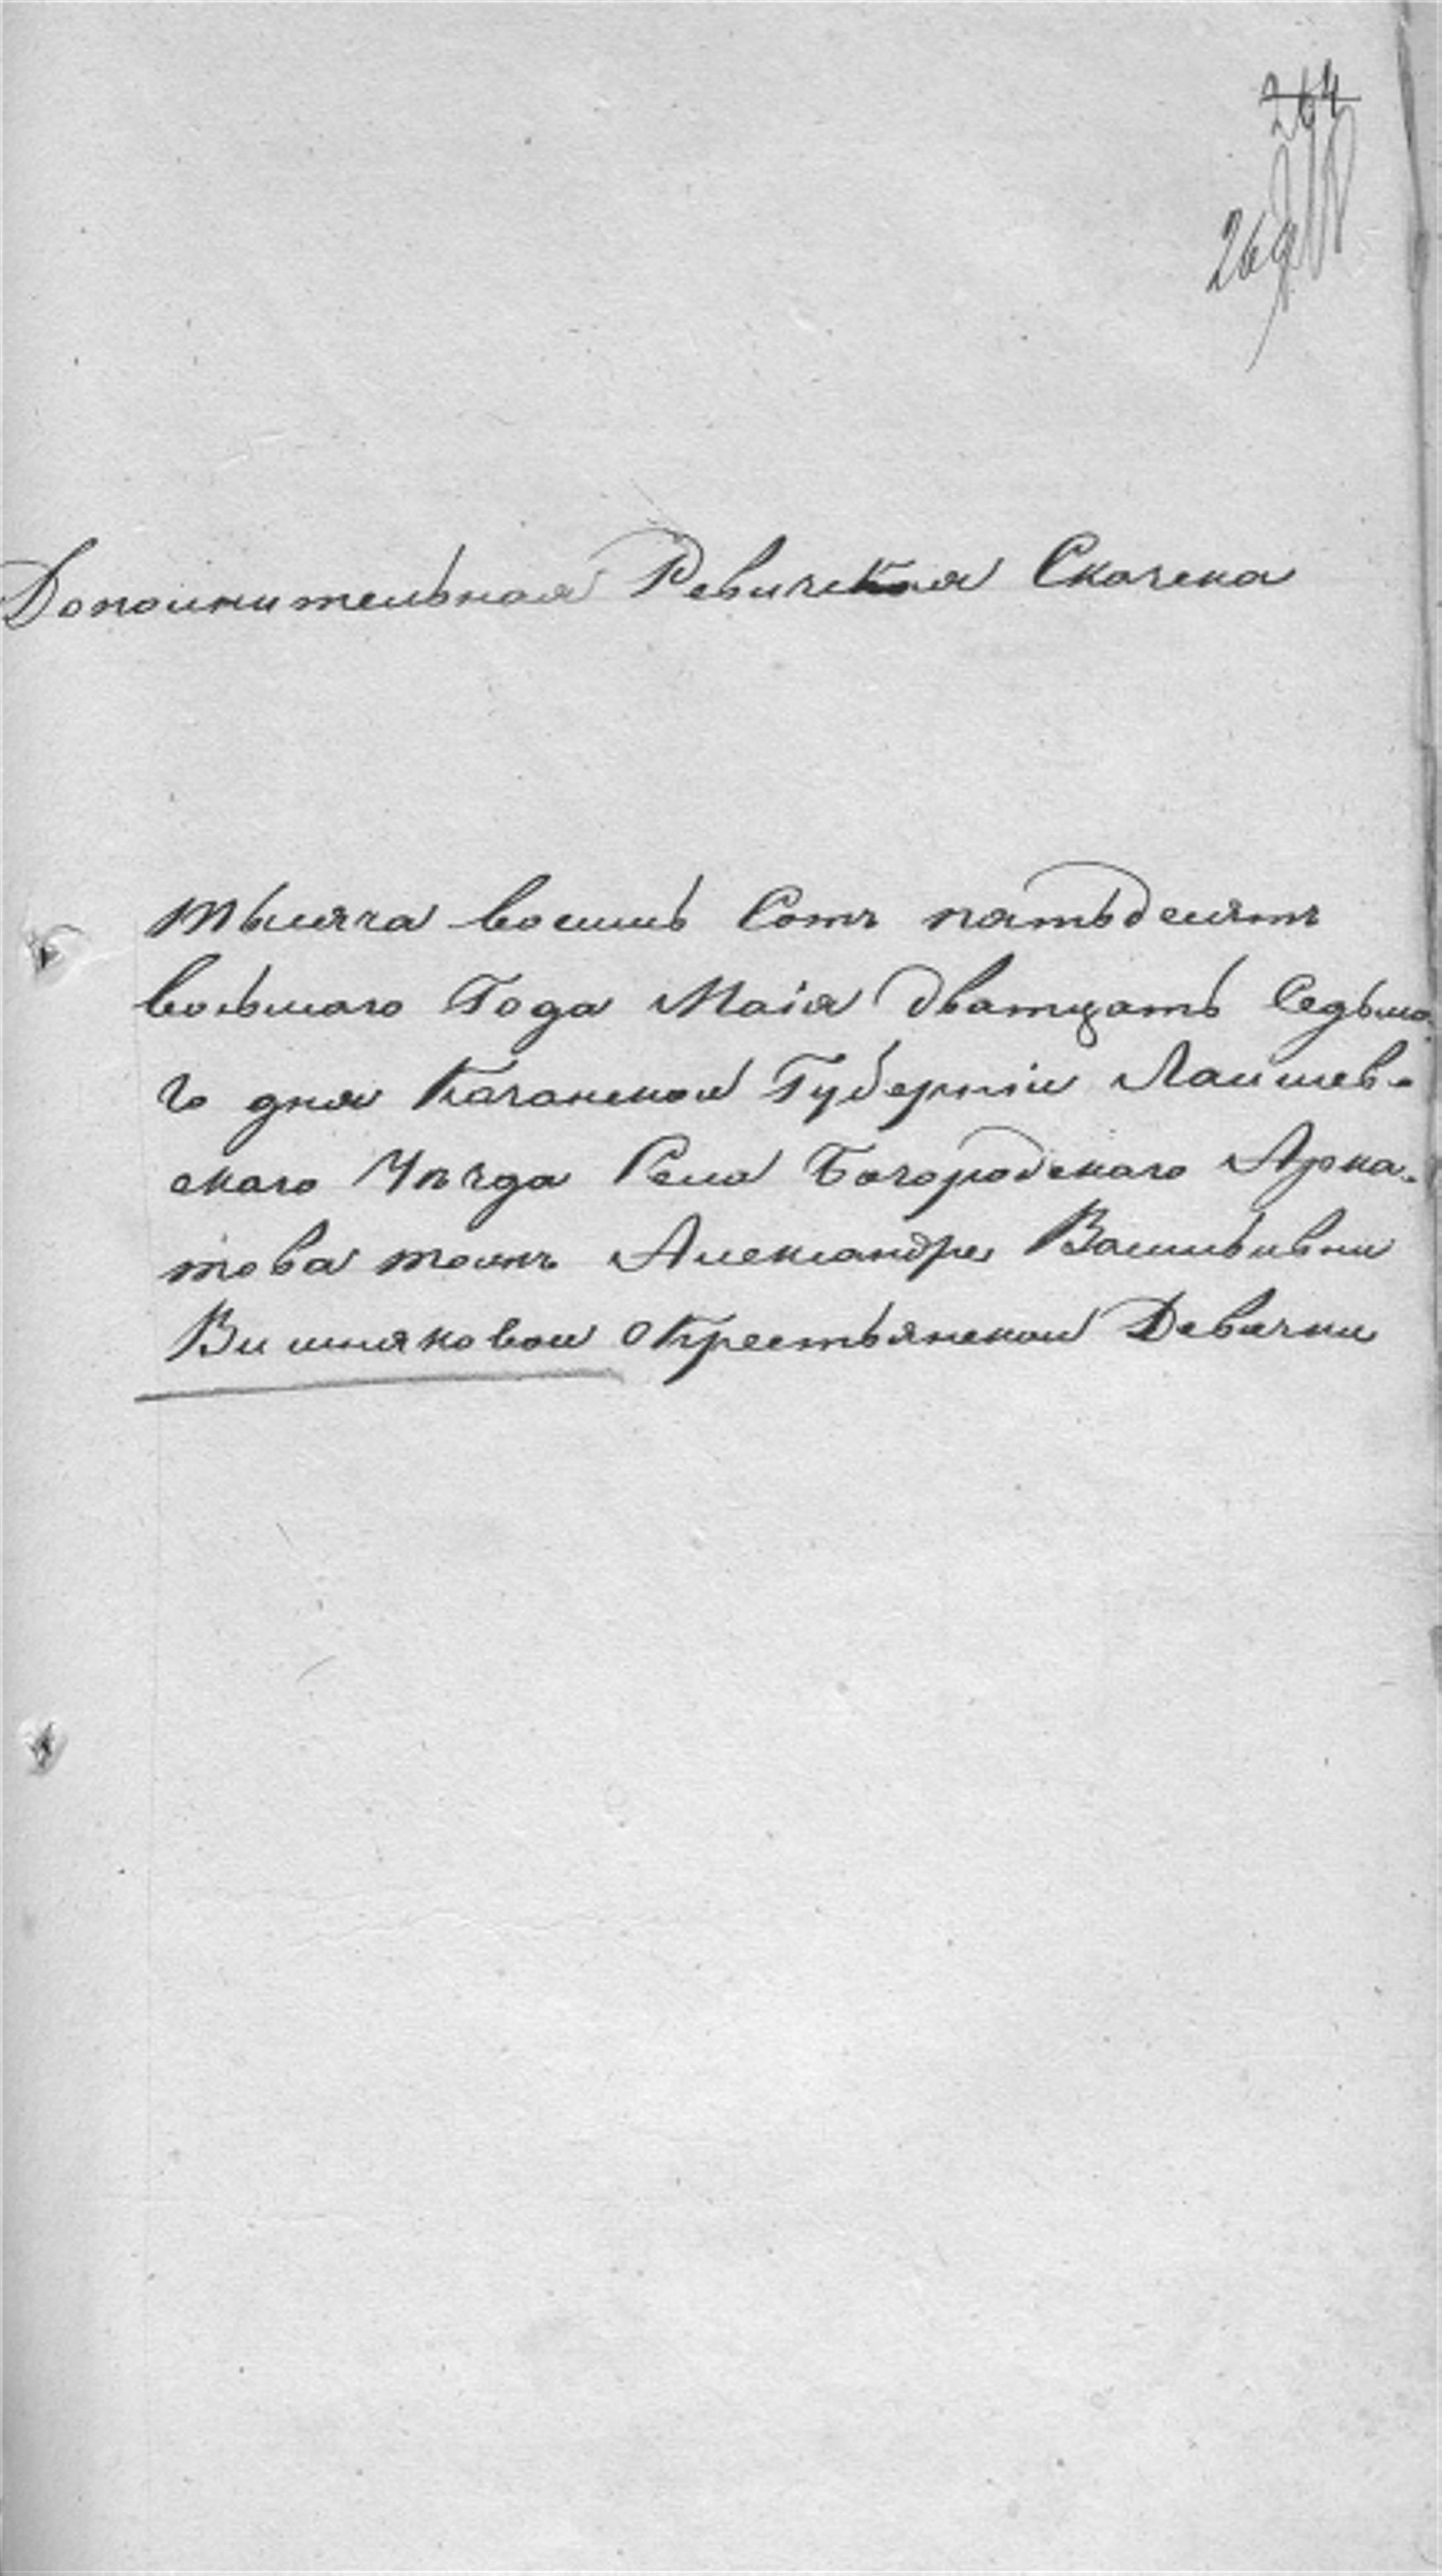 264
269
Дополнительная Ревижская Сказка
тысяча восемь Сотъ пятьдесятъ
восьмаго Года Маія дватцать Седьма-
го дня Казанской Губерніи Лаишев-
скаго Уѣзда Села Богородскаго Арка-
това тожъ Александры Васильивни
Вишняковой о Крестьянской Девачки